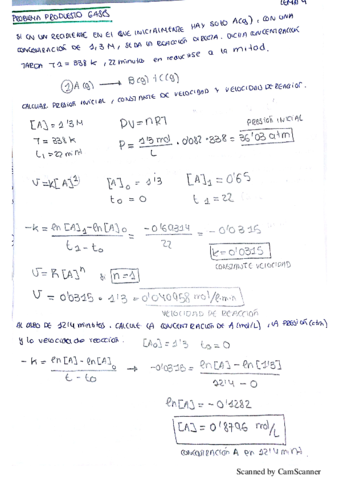 PROBLEMA PRODUCTO GASES
SI EN UN RECIPIENTE EN EL QUE INICIALMENTE HAY SOLO A(g), CON UNA
CONCENTRACIÓN DE 1'3 M, SE DA LA REACCIÓN DIRECTA. DICHA CONCENTRACIÓN
TARDA T1 = 338 K, 22 minutos en reducirse a la mitad.
① A(g) → B(g) + C(g)
CALCULAR PRESIÓN INICIAL, CONSTANTE DE VELOCIDAD Y VELOCIDAD DE REACCIÓN.
[A] = 1'3 M
T = 338 K
t₁ = 22 min
PV = nRT
PRESIÓN INICIAL
P = 1'3 mol/L · 0'082 · 338 = 36'03 atm
V = K[A]¹
[A]₀ = 1'3
t₀ = 0
[A]₁ = 0'65
t₁ = 22
-K = ln[A]₁ - ln[A]₀ / t₁ - t₀ = -0'69314 / 22 = -0'0315
K = 0'0315
CONSTANTE VELOCIDAD
V = K[A]ⁿ
n = 1
V = 0'0315 · 1'3 = 0'040958 mol/l·min
VELOCIDAD DE REACCIÓN
AL CABO DE 12'4 minutos. CALCULE LA CONCENTRACIÓN DE A (mol/L), LA PRESIÓN (atm)
y la velocidad de reacción.
[A₀] = 1'3 t₀ = 0
-K = ln[A] - ln[A]₀ / t - t₀ → -0'0315 = ln[A] - ln[1'3] / 12'4 - 0
ln[A] = -0'1282
[A] = 0'8796 mol/L
CONCENTRACIÓN A EN 12'4 min
Scanned by CamScanner